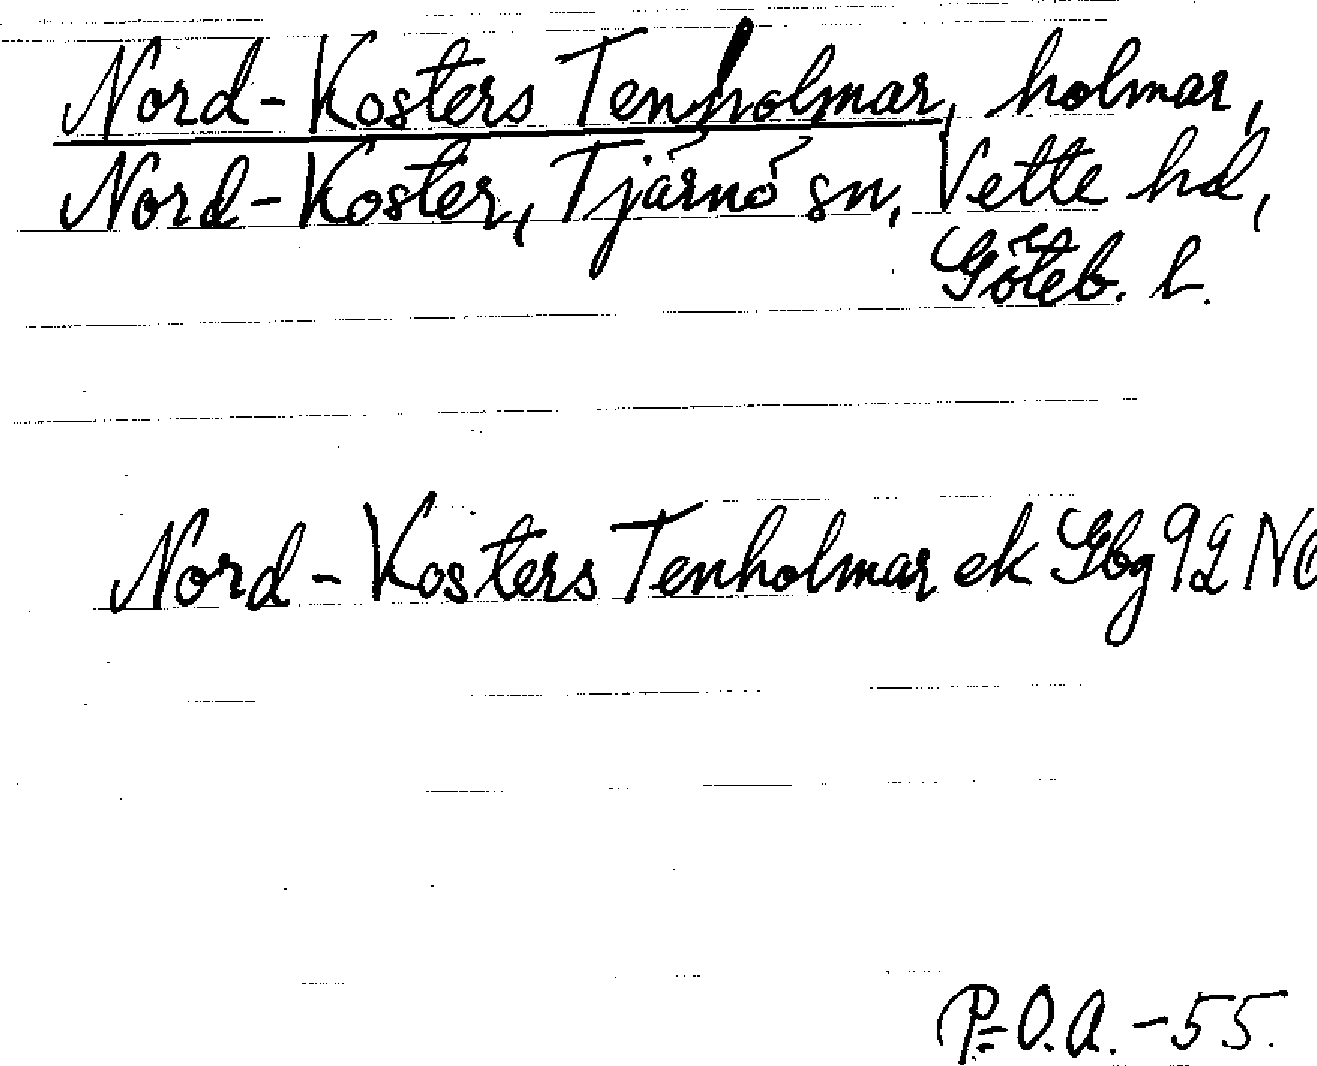 Nord-Kosters Tenholmar, holmar,
Nord-Koster, Tjärnö sn, Vette hd,
Göteb. l.
Nord-Kosters Tenholmar ek Gbg 92 NO
P-O.A. -55.